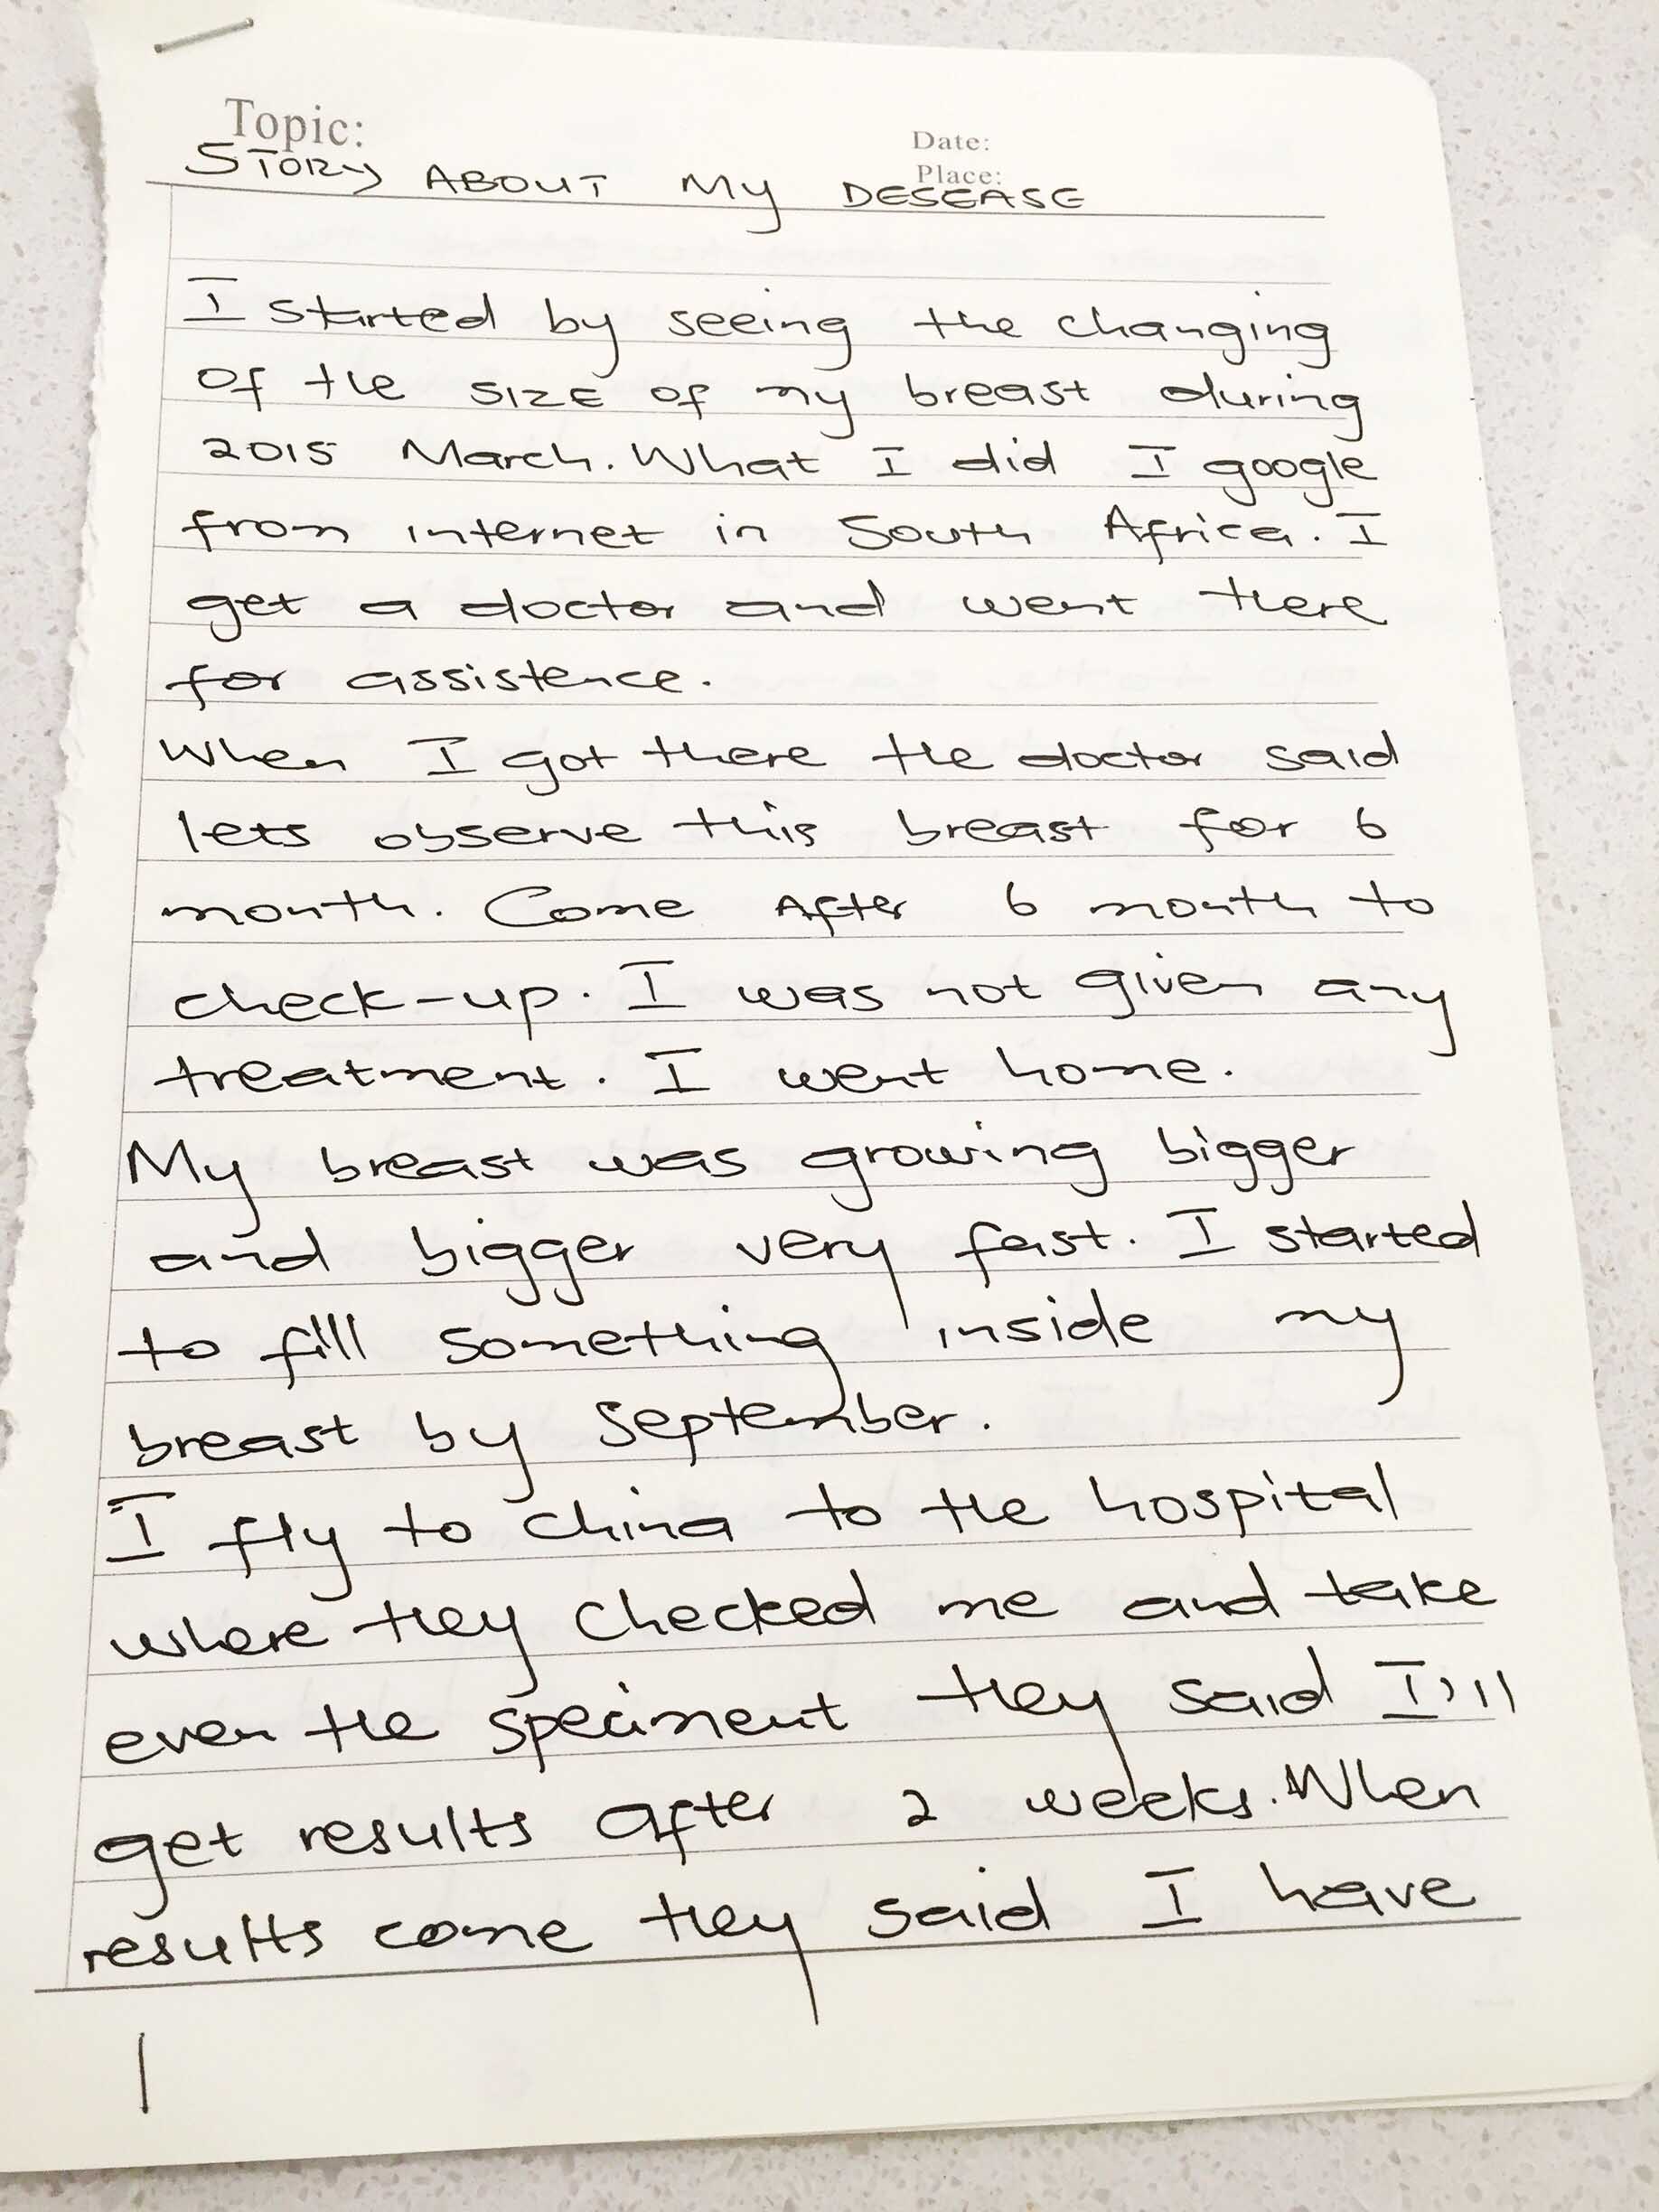 Topic:
Date:
Place:
STORY ABOUT My DESEASE
I started by seeing the changing
of the SIZE of my breast during
2015 March. What I did I google
from internet in South Africa. I
get a doctor and went there
for assistence.
When I got there the doctor said
lets observe this breast for 6
month. Come After 6 month to
check-up. I was not given any
treatment. I went home.
My breast was growing bigger
and bigger very fast. I started
to fill something inside my
breast by September.
I fly to China to the hospital
where they checked me and take
even the speciment they said I'll
get results after 2 weeks. When
results come they said I have
1